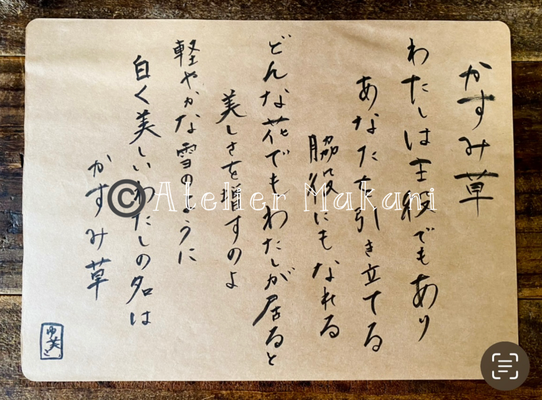 かすみ草
わたしは主役でもあり
あなたを引き立てる
脇役にもなれる
どんな花でもわたしが居ると
美しさを増すのよ
軽やかな雪のように
白く美しいわたしの名は
かすみ草
©Atelier Makani